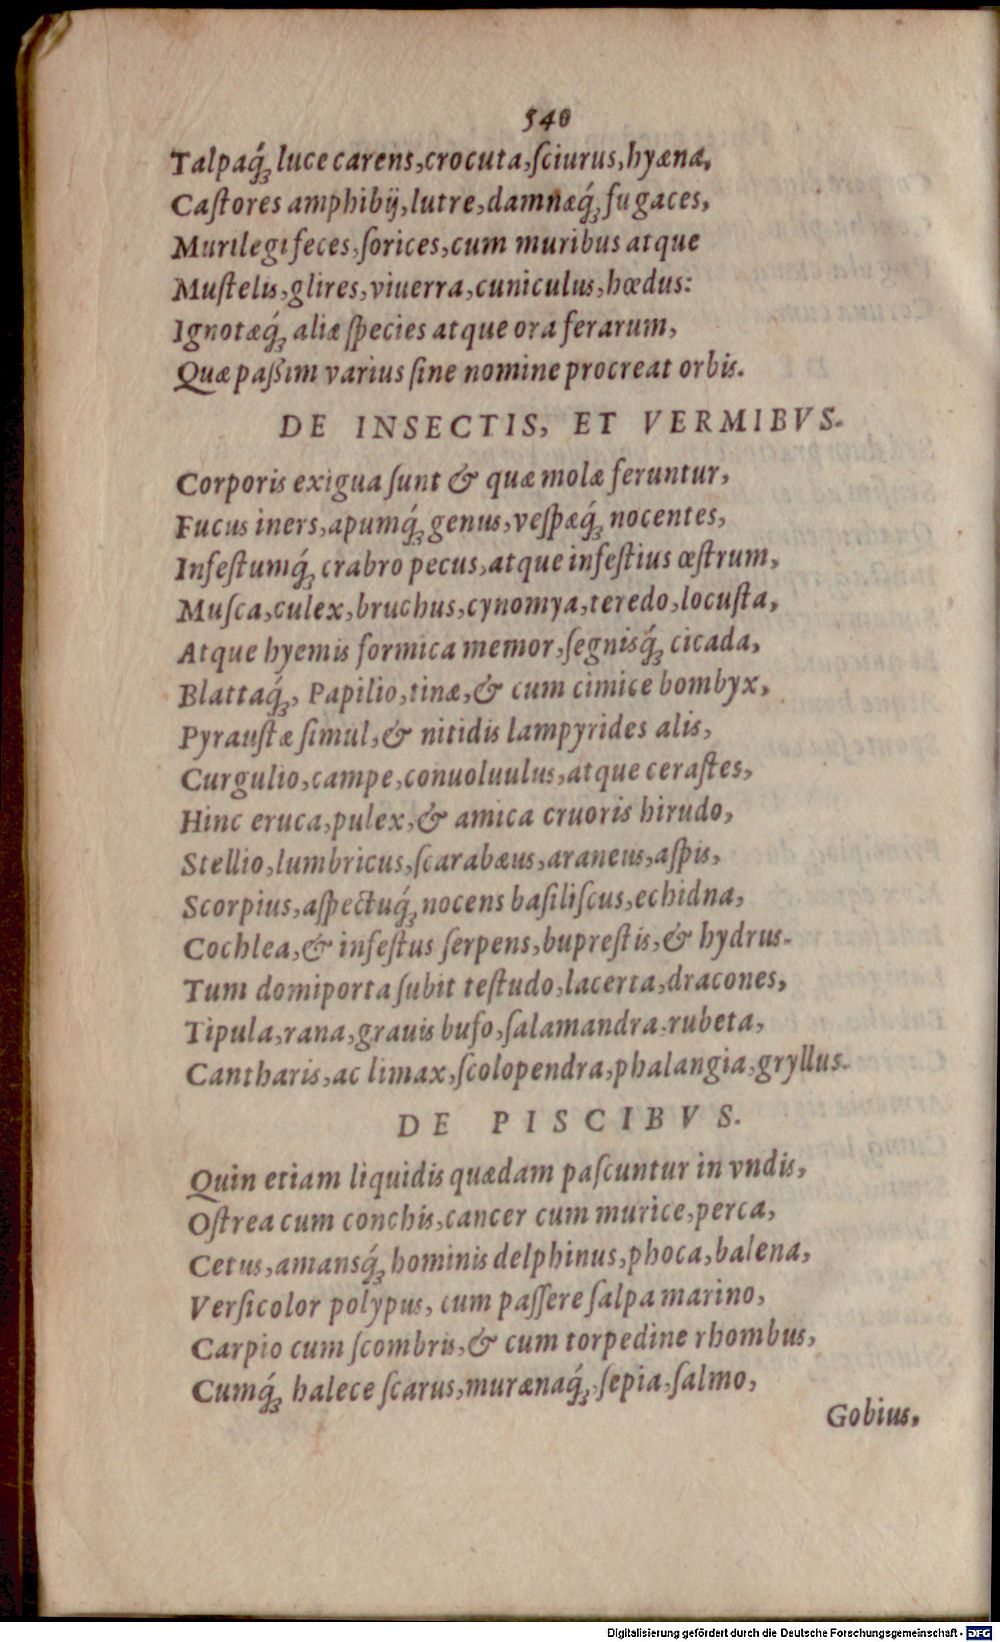 540
Talpaq́ꝫ luce carens, crocuta, ſciurus, hyæna,
Caſtores amphibij, lutre, damnæq́ꝫ fugaces,
Murilegi feces, ſorices, cum muribus atque
Muſtelis, glires, viuerra, cuniculus, hœdus:
Ignotæq́ꝫ aliæ ſpecies atque ora ferarum,
Quæ paßim varius ſine nomine procreat orbis.
DE INSECTIS, ET VERMIBVS.
Corporis exigua ſunt & quæ molæ feruntur,
Fucus iners, apumq́ꝫ genus, veſpæq́ꝫ nocentes,
Infeſtumq́ꝫ crabro pecus, atque infeſtius œſtrum,
Muſca, culex, bruchus, cynomya, teredo, locuſta,
Atque hyemis formica memor, ſegnisq́ꝫ cicada,
Blattaq́ꝫ, Papilio, tinæ, & cum cimice bombyx,
Pyrauſtæ ſimul, & nitidis lampyrides alis,
Curgulio, campe, conuoluulus, atque ceraſtes,
Hinc eruca, pulex, & amica cruoris hirudo,
Stellio, lumbricus, ſcarabæus, araneus, aſpis,
Scorpius, aſpectuq́ꝫ nocens baſiliſcus, echidna,
Cochlea, & infeſtus ſerpens, bupreſtis, & hydrus.
Tum domiporta ſubit teſtudo, lacerta, dracones,
Tipula, rana, grauis bufo, ſalamandra, rubeta,
Cantharis, ac limax, ſcolopendra, phalangia, gryllus.
DE PISCIBVS.
Quin etiam liquidis quædam paſcuntur in vndis,
Oſtrea cum conchis, cancer cum murice, perca,
Cetus, amansq́ꝫ hominis delphinus, phoca, balena,
Verſicolor polypus, cum paſſere ſalpa marino,
Carpio cum ſcombris, & cum torpedine rhombus,
Cumq́ꝫ halece ſcarus, murænaq́ꝫ, ſepia, ſalmo,
Gobius,
Digitalisierung gefördert durch die Deutsche Forschungsgemeinschaft - DFG